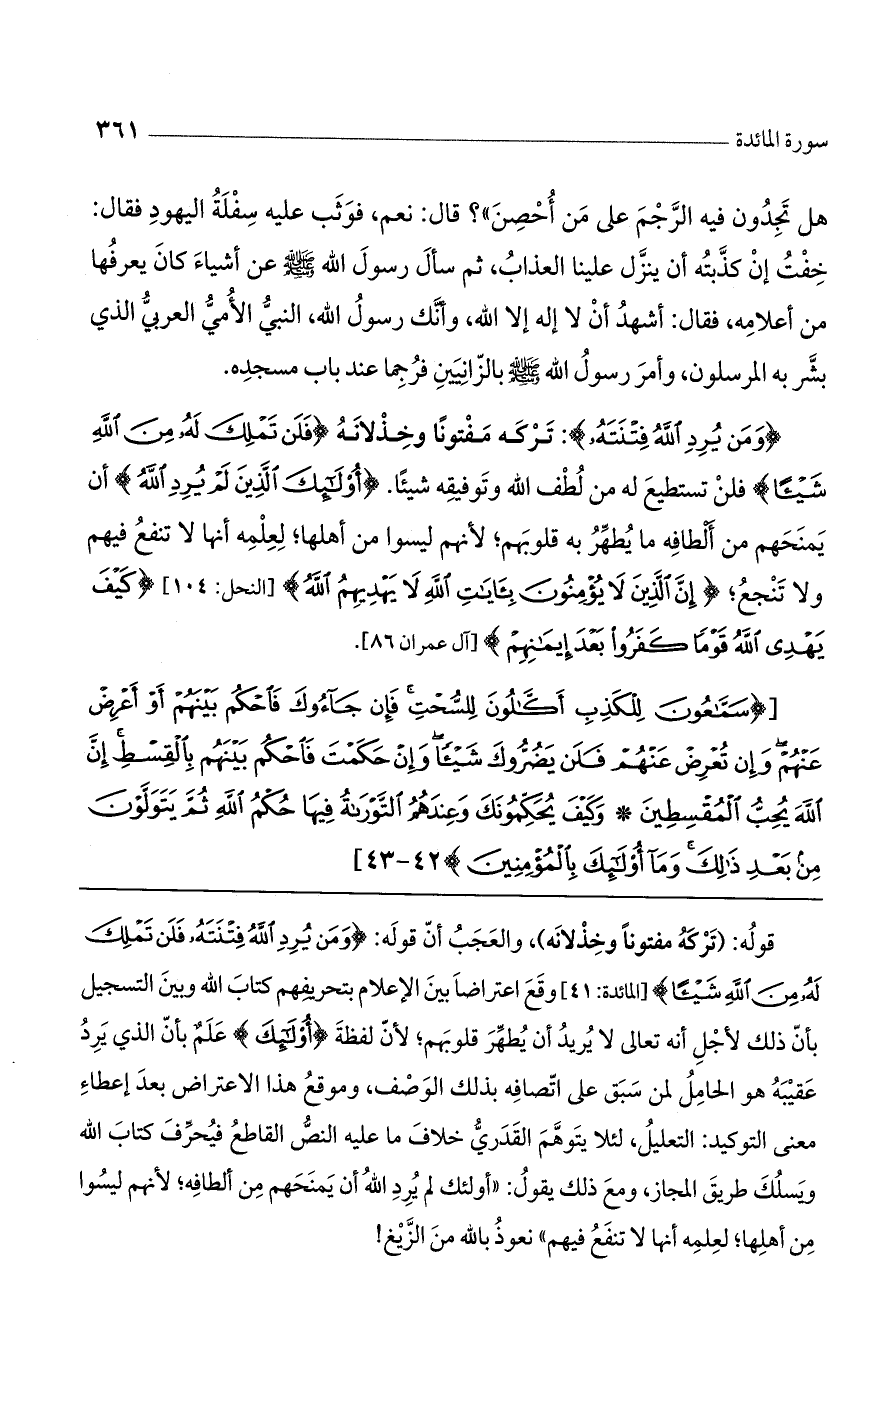 سورة المائدة ٣٦١
هل تَجِدُون فيه الرَّجْمَ على مَن أُحْصِنَ»؟ قال: نعم، فوَثَب عليه سِفْلَةُ اليهودِ فقال:
خِفْتُ إنْ كذَّبتُه أن ينزَّل علينا العذابُ، ثم سألَ رسولَ الله ﷺ عن أشياءَ كانَ يعرفُها
من أعلامِه، فقال: أشهدُ أنْ لا إله إلا الله، وأنَّك رسولُ الله، النبيُّ الأُميُّ العربيُّ الذي
بشَّر به المرسلون، وأمرَ رسولُ الله ﷺ بالزّانِيَينِ فرُجِما عند باب مسجدِه.
﴿وَمَن يُرِدِ ٱللَّهُ فِتْنَتَهُۥ﴾: تَرْكَه مَفْتونًا وخِذْلانَهُ ﴿فَلَن تَمْلِكَ لَهُۥ مِنَ ٱللَّهِ
شَيْـًٔا﴾ فلنْ تستطيعَ له من لُطْف الله وتَوفيقِه شيئًا. ﴿أُوْلَـٰٓئِكَ ٱلَّذِينَ لَمْ يُرِدِ ٱللَّهُ﴾ أن
يَمنَحَهم من ألْطافِه ما يُطهِّرُ به قلوبَهم؛ لأنهم ليسوا من أهلها؛ لِعِلْمِه أنها لا تنفعُ فيهم
ولا تَنْجعُ؛ ﴿إِنَّ ٱلَّذِينَ لَا يُؤْمِنُونَ بِـَٔايَـٰتِ ٱللَّهِ لَا يَهْدِيهِمُ ٱللَّهُ﴾ [النحل: ١٠٤] ﴿كَيْفَ
يَهْدِى ٱللَّهُ قَوْمًا كَفَرُوا۟ بَعْدَ إِيمَـٰنِهِمْ﴾ [آل عمران ٨٦].
[﴿سَمَّـٰعُونَ لِلْكَذِبِ أَكَّـٰلُونَ لِلسُّحْتِ ۚ فَإِن جَآءُوكَ فَٱحْكُم بَيْنَهُمْ أَوْ أَعْرِضْ
عَنْهُمْ ۖ وَإِن تُعْرِضْ عَنْهُمْ فَلَن يَضُرُّوكَ شَيْـًٔا ۖ وَإِنْ حَكَمْتَ فَٱحْكُم بَيْنَهُم بِٱلْقِسْطِ ۚ إِنَّ
ٱللَّهَ يُحِبُّ ٱلْمُقْسِطِينَ * وَكَيْفَ يُحَكِّمُونَكَ وَعِندَهُمُ ٱلتَّوْرَىٰةُ فِيهَا حُكْمُ ٱللَّهِ ثُمَّ يَتَوَلَّوْنَ
مِنۢ بَعْدِ ذَٰلِكَ ۚ وَمَآ أُوْلَـٰٓئِكَ بِٱلْمُؤْمِنِينَ﴾ ٤٢-٤٣]
قولُه: (تَرْكَهُ مفتوناً وخِذْلانَه)، والعَجَبُ أنّ قولَه: ﴿وَمَن يُرِدِ ٱللَّهُ فِتْنَتَهُۥ فَلَن تَمْلِكَ
لَهُۥ مِنَ ٱللَّهِ شَيْـًٔا﴾ [المائدة: ٤١] وقَعَ اعتراضاً بينَ الإعلام بتحريفِهم كتابَ الله وبينَ التسجيل
بأنّ ذلك لأجْلِ أنه تعالى لا يُريدُ أن يُطهِّرَ قلوبَهم؛ لأنّ لفظةَ ﴿أُوْلَـٰٓئِكَ﴾ عَلَمٌ بأنّ الذي يَرِدُ
عَقيْبَهُ هو الحامِلُ لمن سَبَق على اتّصافِه بذلك الوَصْف، وموقعُ هذا الاعتراض بعدَ إعطاءِ
معنى التوكيد: التعليلُ، لئلا يَتوهَّمَ القَدَريُّ خلافَ ما عليه النصُّ القاطعُ فيُحرِّفَ كتابَ الله
ويَسلُكَ طريقَ المجاز، ومعَ ذلك يقولُ: «أولئك لم يُرِدِ اللهُ أن يَمنَحَهم مِن ألطافِه؛ لأنهم ليسُوا
مِن أهلِها؛ لعِلمِه أنها لا تنفَعُ فيهم» نعوذُ بالله منَ الزَّيْغ!